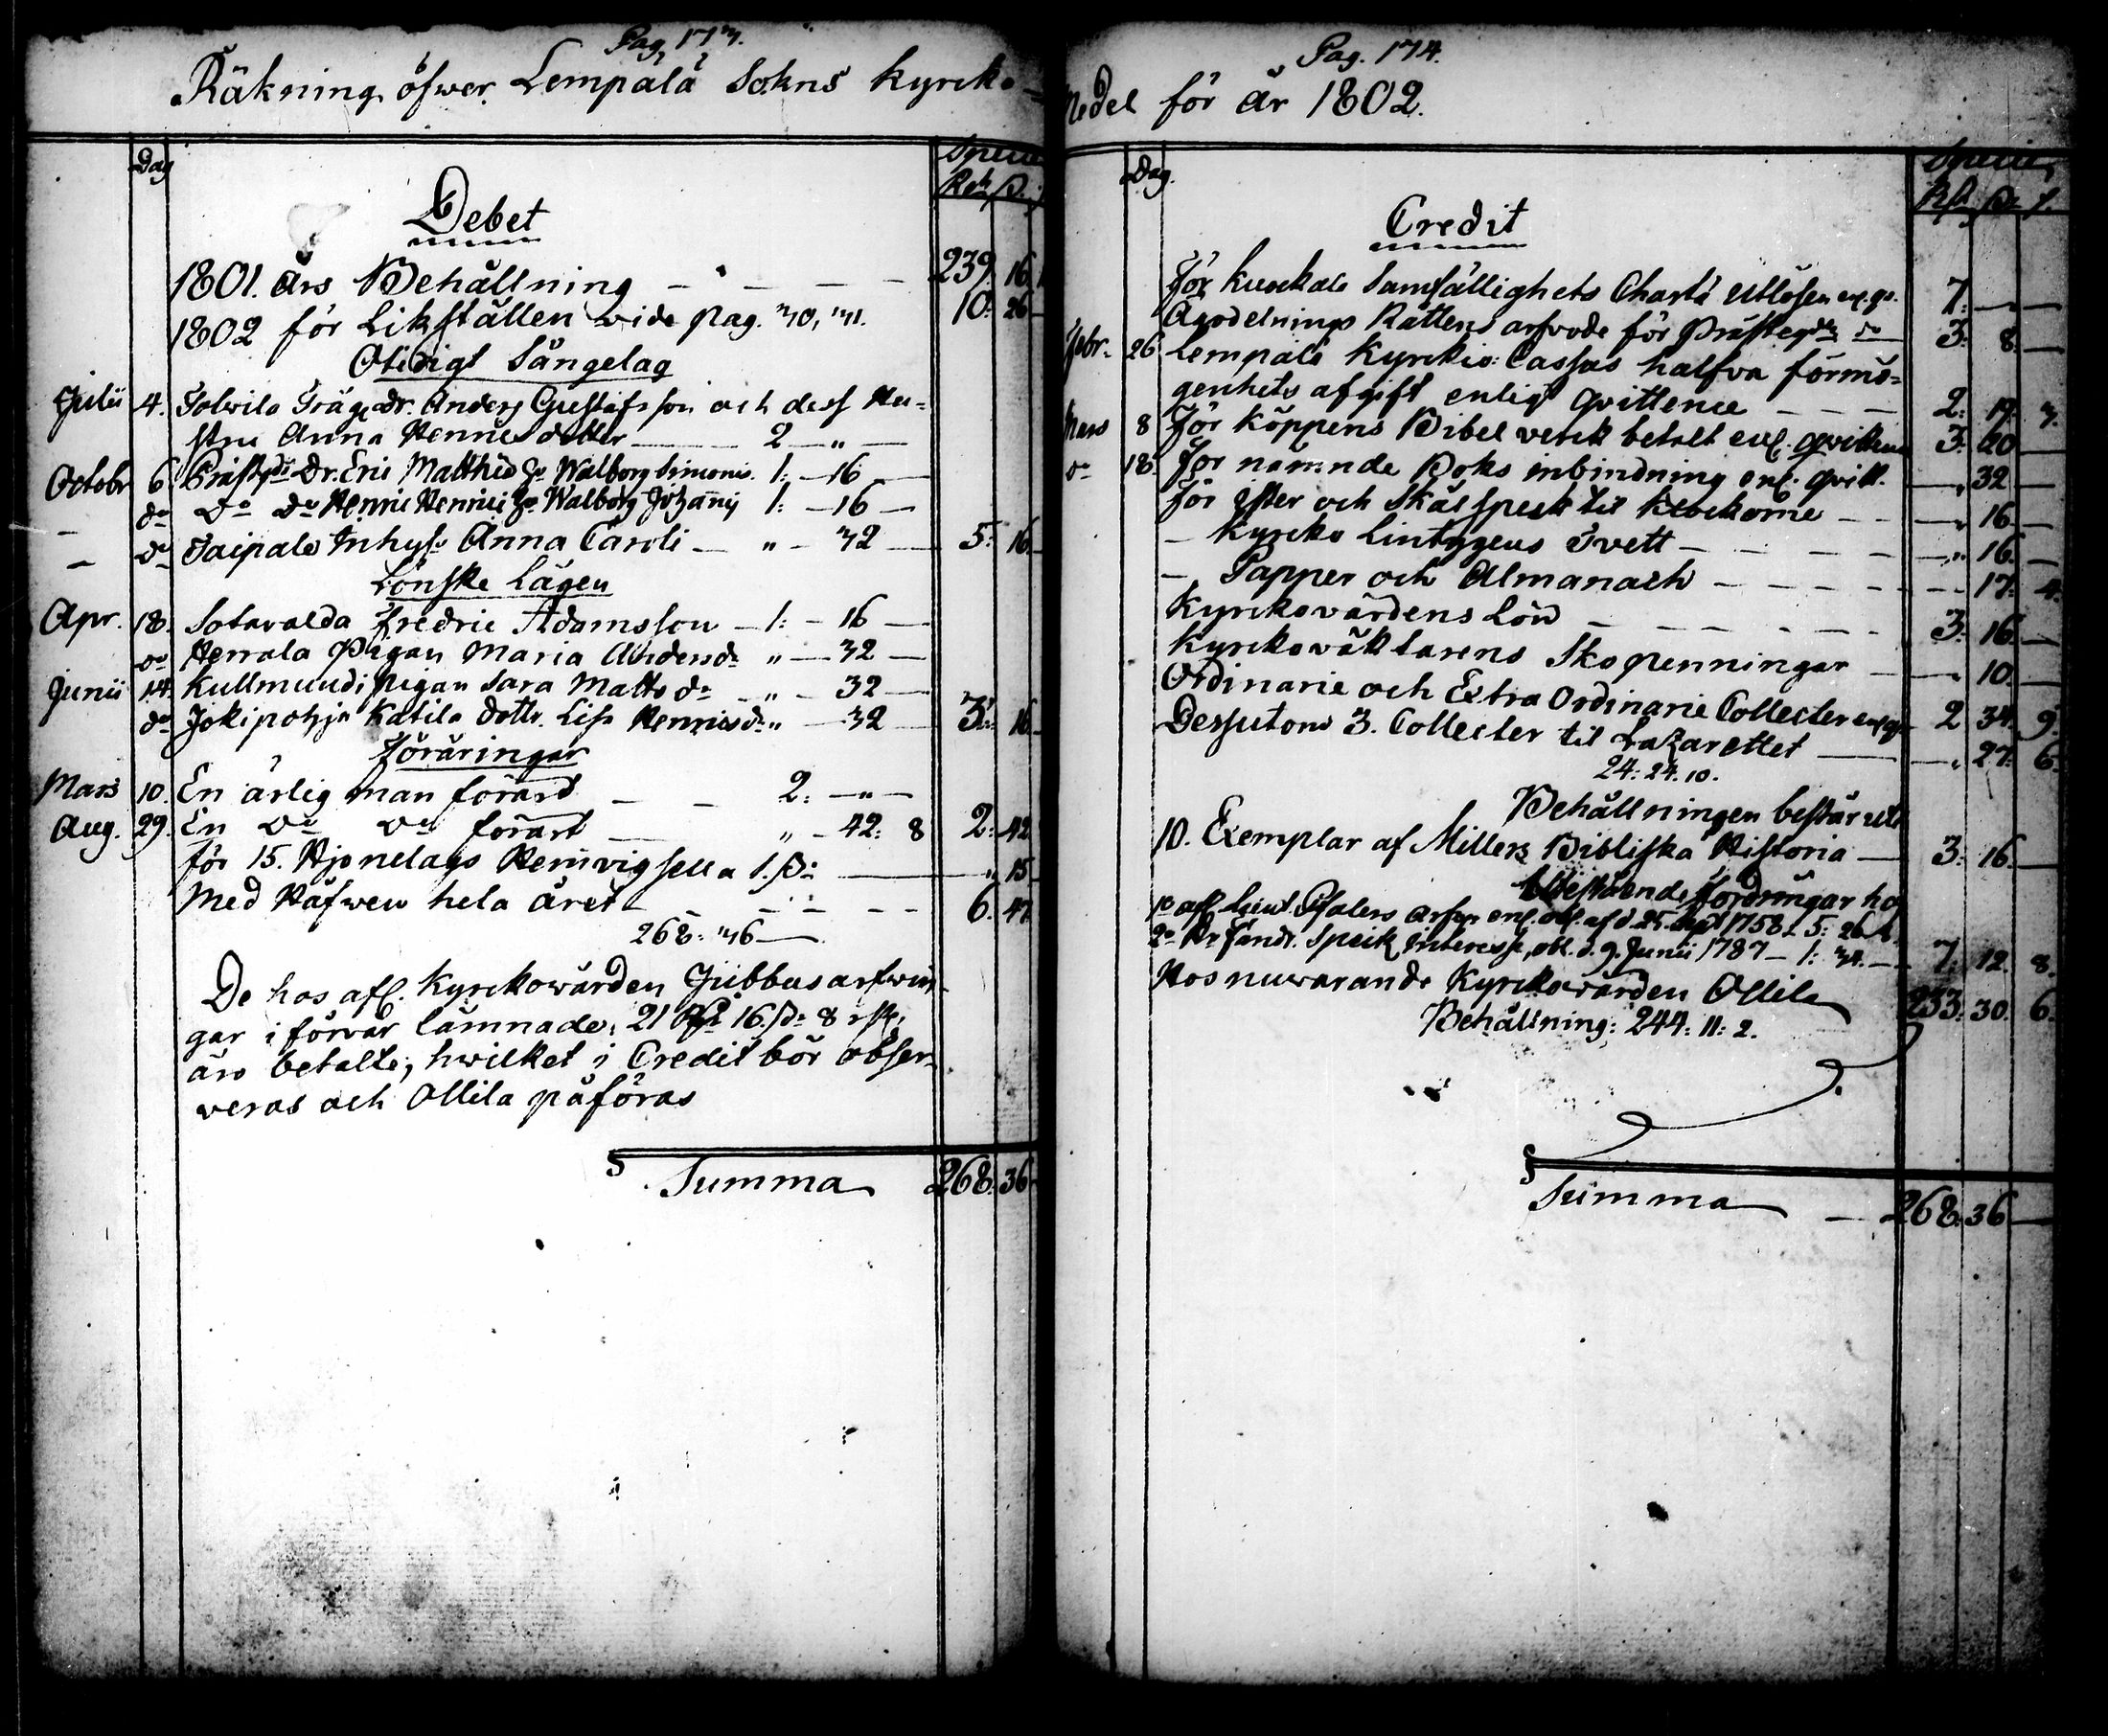 Pag. 173.
Räkning öfwer Lempälä Sokns Kyrcko-
Dag
Specie
Rdr ß.
Debet
1801. års Behållning — — — — 239. 16.
1802 för Likställen vide pag. 30, 31. 10: 26
Otidigt Sängelag
Julii 4. Tolvila Träg. Dr. Anders Gustafsson och dess Hu-
stru Anna Henricsdotter — 2 — " —
Octobr 6 Prästgds Dr. Eric Matthiæ Ju Walborg Simonis. 1: — 16 —
do do do Henric Henrici Ju Walborg Johannis 1: — 16 —
— do Taipale Inhyss Anna Caroli — " — 32 — 5: 16
Lönske Lägen
Apr. 18. Sotavalda Fredric Adamsson — 1: — 16 —
do Herrala Pigan Maria Andersdr " — 32 —
Junii 14. Kullmundi pigan Sara Matts dr — " — 32
do Jokipohja Katila dottr. Lisa Henricsdr " — 32 — 3: 16
Föräringar
Mars 10. En ärlig man förärd — — 2: — " —
Aug. 29. En do do förärt — " — 42: 8 2: 42
för 15. Hjonelags Hemvigsell a 1. ß: — " 15
Med Håfwen hela året — — — — — 6. 47
268: 36 —
De hos afl. Kyrckowärden Gubbas arfwin-
gar i förvar lämnade, 21 Rd 16. ß: 8 rst,
äro betalte, hwilket i Credit bör obser-
veras och Ollila påföras
Summa 268. 36
Pag. 174.
Medel för år 1802.
Dag.
Specie
Rd ß r.
Credit
För Kuockala Samfällighets Charta utlösen enl. qv. 7: — —
Ägodelnings Rättens arfvode för Prästegdn do 3: 8. —
Febr. 26 Lempälä Kyrckio: Cassas halfva förmö-
genhets afgift enligt qvittence — — — 2: 19. 3.
Mars 8 För Köppens Bibel verck betalt enl. qvittence 3: 20 —
do 18. För nämnde Boks inbindning enl. qvitt. — 32 —
för ister och Skålspeck til Klockorne — — 16 —
— Kyrcko Lintygens Tvett — — — — — 16. —
— Papper och Almanach — — — — — 17. 4.
Kyrckovärdens Lön — — — — — 3: 16. —
Kyrckoväktarens Skopenningar — — 10. —
Ordinarie och Extra Ordinarie Collecter enl. qv. 2 34. 9.
Dessutom 3. Collecter til Lazarettet — — 27: 6.
24: 24. 10.
Behållningen består uti
10. Exemplar af Millers Bibliska Historia — 3: 16. —
Utestående fordringar hos
1o afl. Lieut. arfv. enl. obl. af d. 25. 1758 — 5: 26. 8.
2o Hr Fändr. Speik interesse, obl. d. 9. Junii 1787 — 1: 34. — 7: 12. 8.
Hos nuvarande Kyrckowärden Ollila 233. 30. 6.
Behållning: 244: 11: 2.
Summa — 268. 36 —